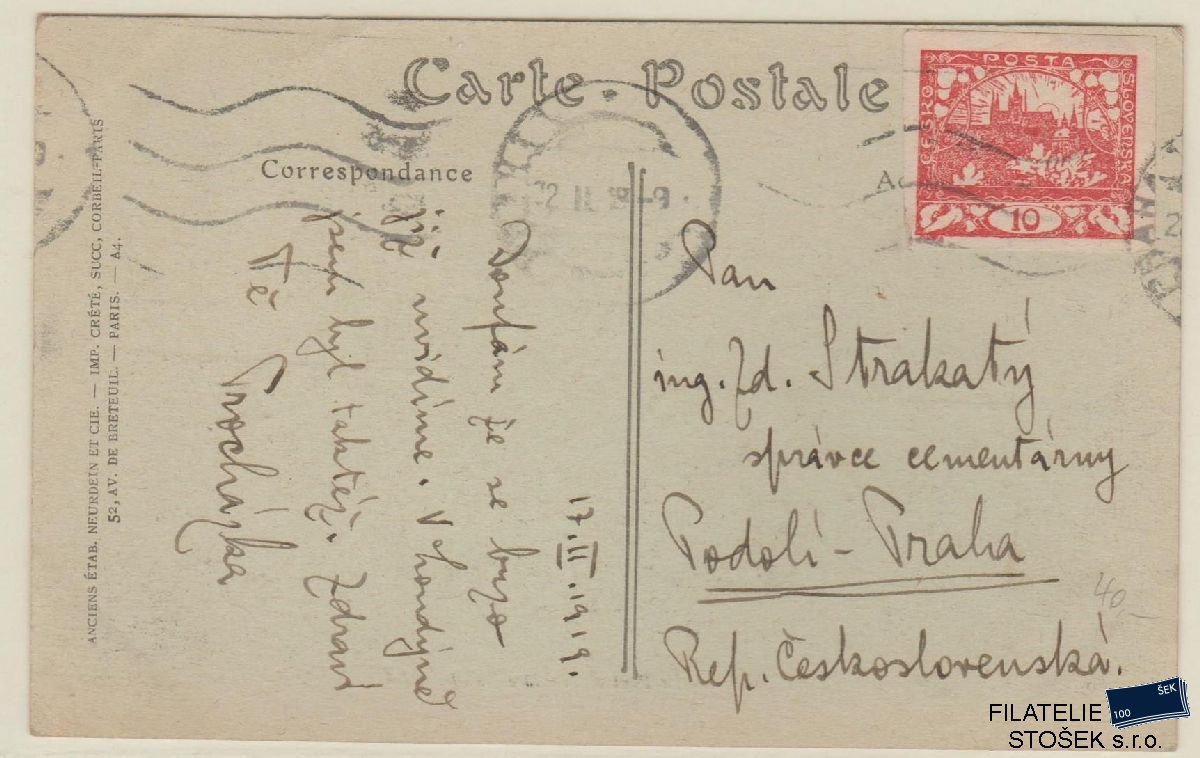 Carte Postale
Correspondance
ANCIENS ÉTAB. NEURDEIN ET CIE. — IMP. CRÉTÉ, SUCC, CORBEIL-PARIS
52, AV. DE BRETEUIL. — PARIS. — A4.
17.II.1919.
Doufám že se brzo
již uvidíme. V Londýně
jsem byl taktéž. Zdraví
Tě
Procházka
POSTA
ČESKO
SLOVENSKÁ
10
Pan
ing. Zd. Strakatý
správce cementárny
Podolí - Praha
Rep. Československá.
40-
FILATELIE
STOŠEK s.r.o.
100
ŠEK